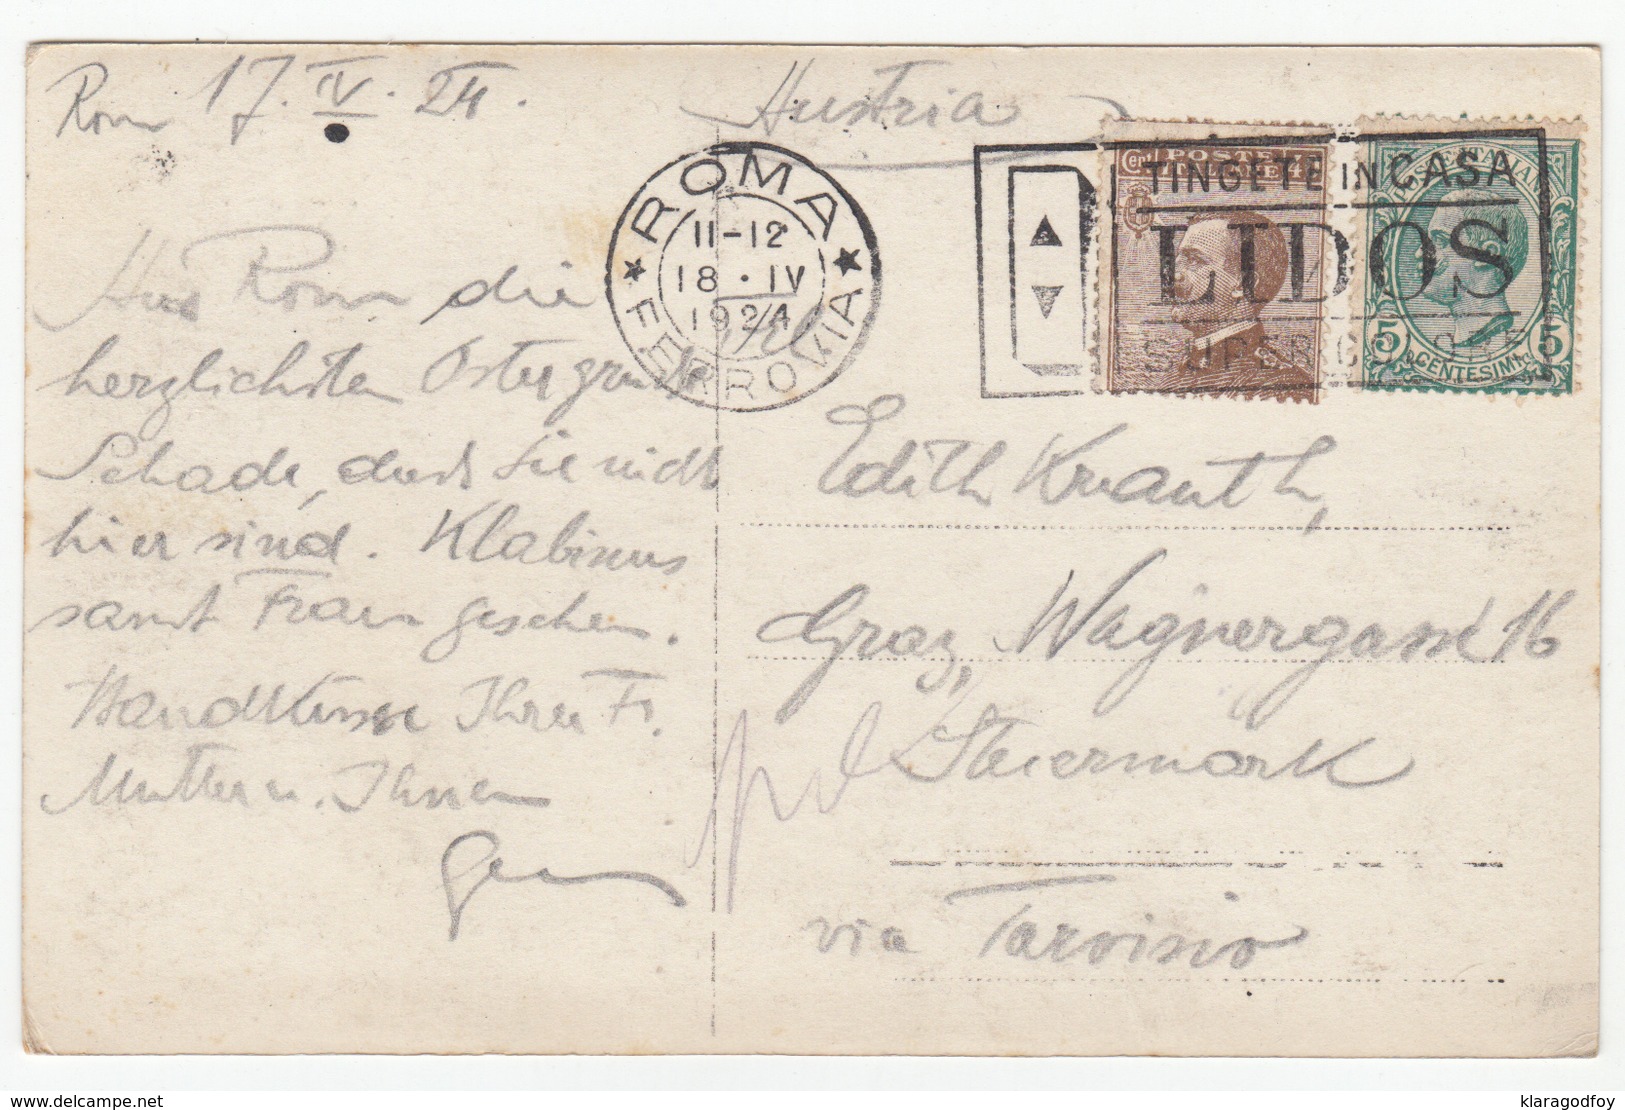 Rom 17. IV. 24.
Austria
ROMA
FERROVIA
11-12
18 · IV
1924
TINGETE IN CASA
LIDOS
SUPER
POSTE
Cent 4
5 5
CENTESIMI
Aus Rom die
herzlichsten Ostergrüße
Schade, dass Sie nicht
hier sind. Klabinus
samt Frau gesehen.
Handküsse Ihrer Fr.
Mutter u. Ihnen
Edith Knauth,
Graz, Wagnergasse 16
Steiermark
via Tarvisio
www.delcampe.net
klaragodfoy